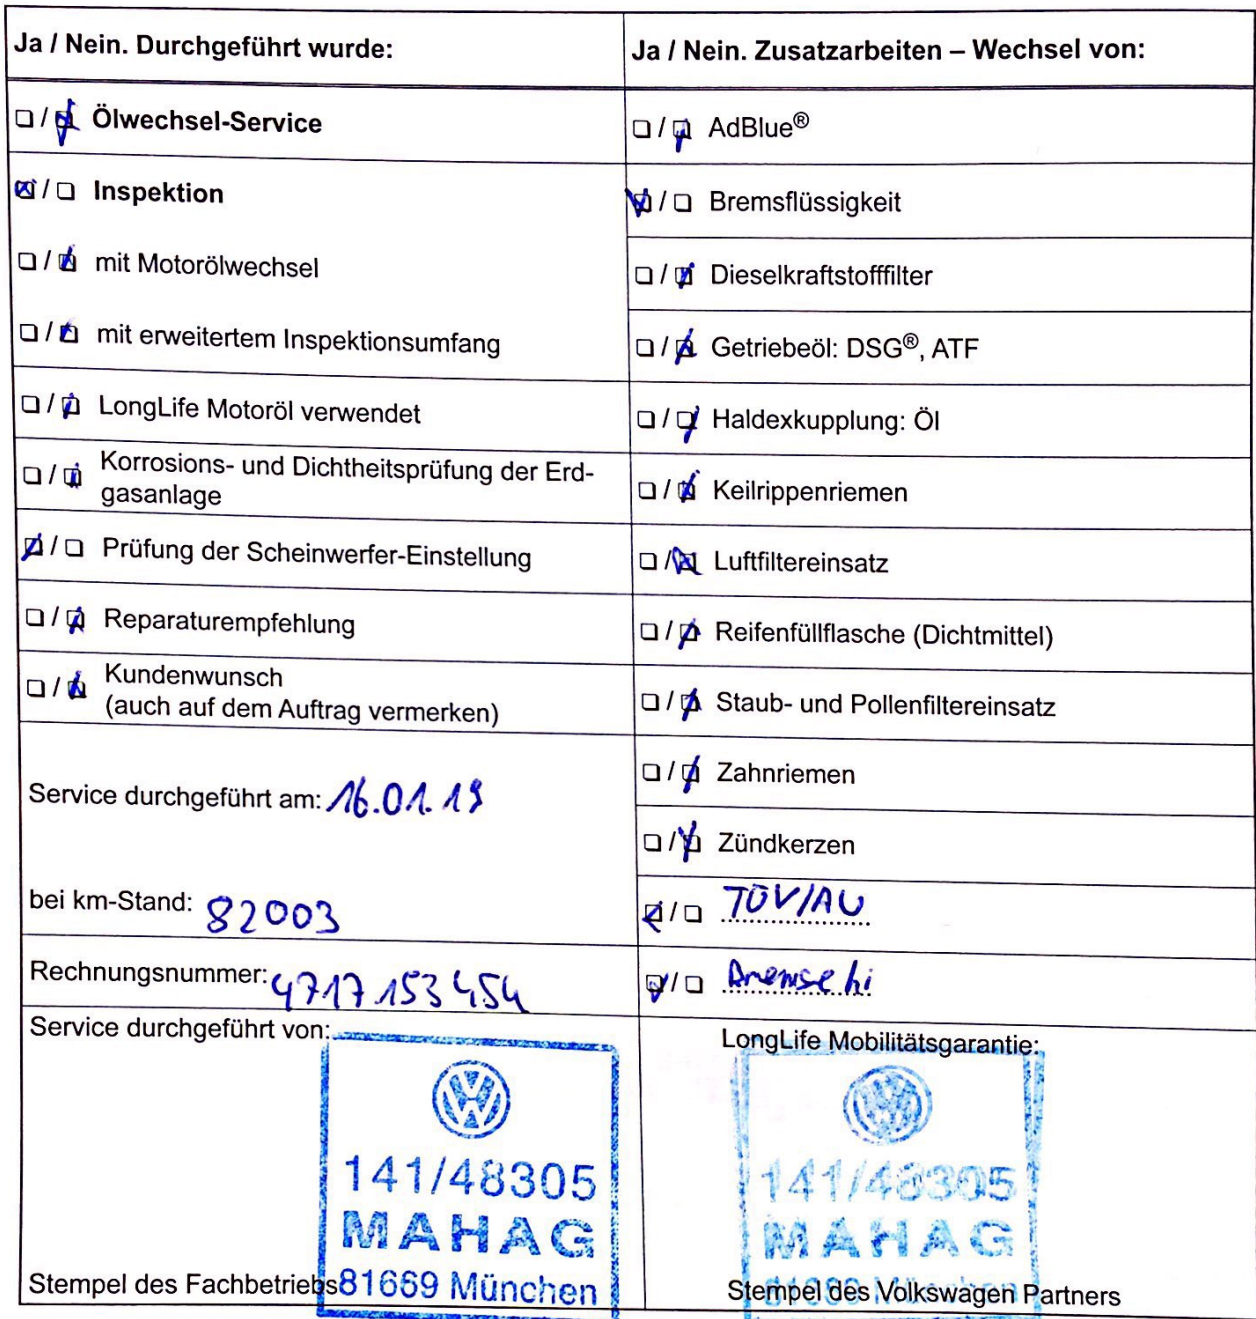 Ja / Nein. Durchgeführt wurde:
☐ / ☑ Ölwechsel-Service
☑ / ☐ Inspektion
☐ / ☑ mit Motorölwechsel
☐ / ☑ mit erweitertem Inspektionsumfang
☐ / ☑ LongLife Motoröl verwendet
☐ / ☑ Korrosions- und Dichtheitsprüfung der Erd-
gasanlage
☑ / ☐ Prüfung der Scheinwerfer-Einstellung
☐ / ☑ Reparaturempfehlung
☐ / ☑ Kundenwunsch
(auch auf dem Auftrag vermerken)
Service durchgeführt am: 16.01.19
bei km-Stand: 82003
Rechnungsnummer: 4717 153 454
Service durchgeführt von:
141/48305
MAHAG
81669 München
Stempel des Fachbetriebs
Ja / Nein. Zusatzarbeiten – Wechsel von:
☐ / ☑ AdBlue®
☑ / ☐ Bremsflüssigkeit
☐ / ☑ Dieselkraftstofffilter
☐ / ☑ Getriebeöl: DSG®, ATF
☐ / ☑ Haldexkupplung: Öl
☐ / ☑ Keilrippenriemen
☐ / ☑ Luftfiltereinsatz
☐ / ☑ Reifenfüllflasche (Dichtmittel)
☐ / ☑ Staub- und Pollenfiltereinsatz
☐ / ☑ Zahnriemen
☐ / ☑ Zündkerzen
☑ / ☐ TÜV/AU
☑ / ☐ Bremse hi
LongLife Mobilitätsgarantie:
141/48305
MAHAG
81669 München
Stempel des Volkswagen Partners